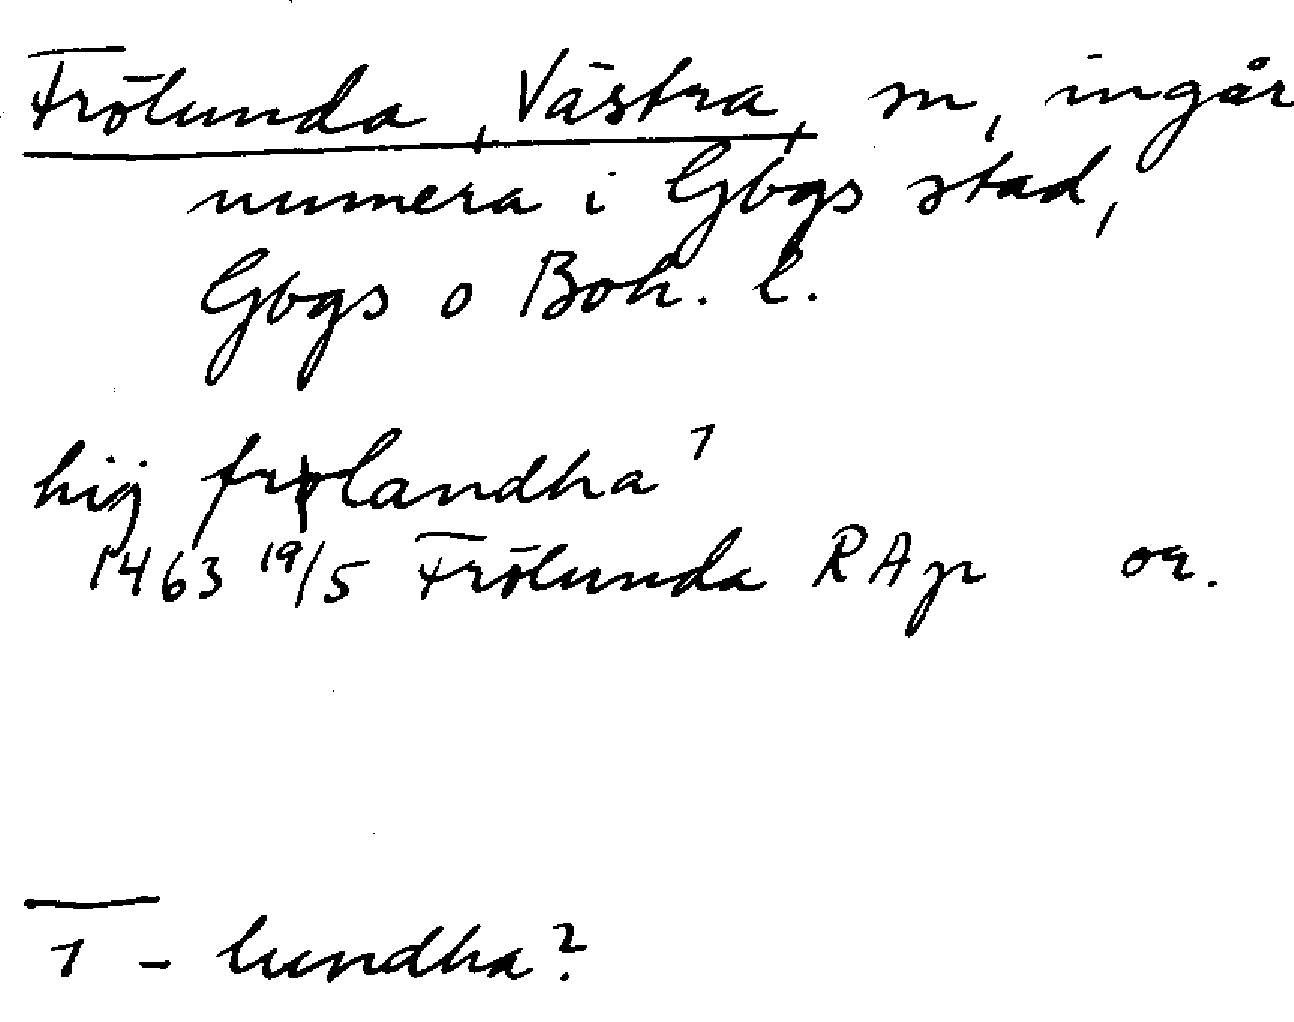 Frölunda, Västra, sn, ingår
numera i Gbgs stad,
Gbgs o Boh. l.
hijǫ frølandha¹
1463 19/5 Frölunda RAp or.
1 - lundha?